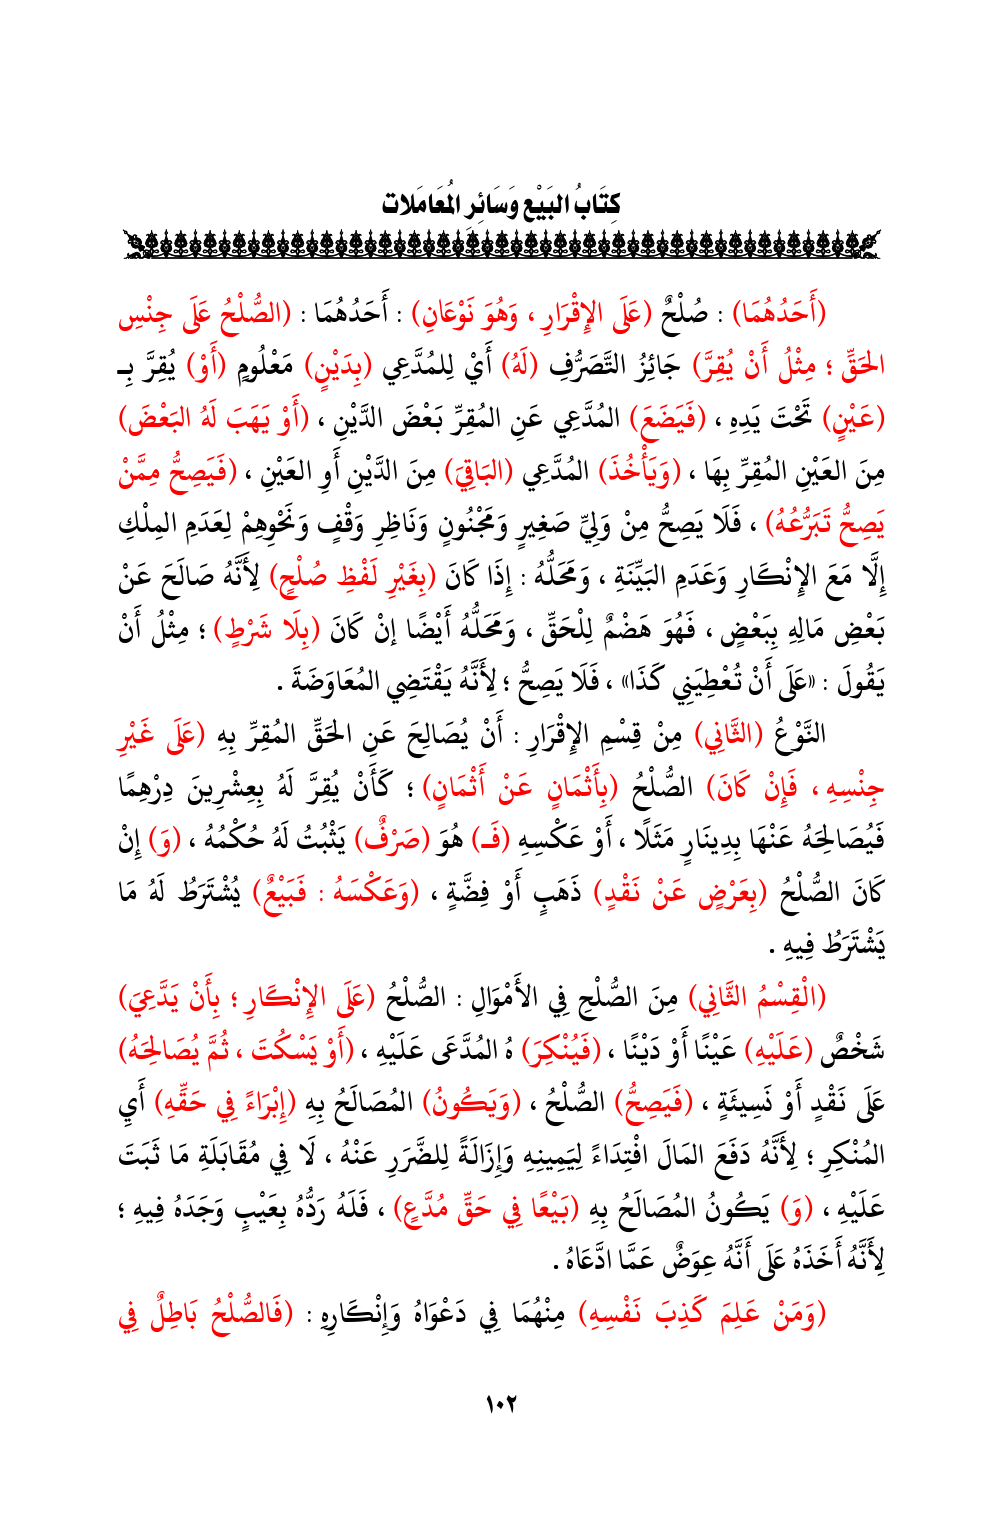 كِتَابُ البَيْعِ وَسَائِرِ المُعَامَلات
(أَحَدُهُمَا) : صُلْحٌ (عَلَى الإِقْرَارِ ، وَهُوَ نَوْعَانِ) : أَحَدُهُمَا : (الصُّلْحُ عَلَى جِنْسِ
الحَقِّ ؛ مِثْلُ أَنْ يُقِرَّ) جَائِزُ التَّصَرُّفِ (لَهُ) أَيْ لِلمُدَّعِي (بِدَيْنٍ) مَعْلُومٍ (أَوْ) يُقِرَّ بِـ
(عَيْنٍ) تَحْتَ يَدِهِ ، (فَيَضَعَ) المُدَّعِي عَنِ المُقِرِّ بَعْضَ الدَّيْنِ ، (أَوْ يَهَبَ لَهُ البَعْضَ)
مِنَ العَيْنِ المُقِرِّ بِهَا ، (وَيَأْخُذَ) المُدَّعِي (البَاقِيَ) مِنَ الدَّيْنِ أَوِ العَيْنِ ، (فَيَصِحُّ مِمَّنْ
يَصِحُّ تَبَرُّعُهُ) ، فَلَا يَصِحُّ مِنْ وَلِيِّ صَغِيرٍ وَمَجْنُونٍ وَنَاظِرِ وَقْفٍ وَنَحْوِهِمْ لِعَدَمِ المِلْكِ
إِلَّا مَعَ الإِنْكَارِ وَعَدَمِ البَيِّنَةِ ، وَمَحَلُّهُ : إِذَا كَانَ (بِغَيْرِ لَفْظِ صُلْحٍ) لِأَنَّهُ صَالَحَ عَنْ
بَعْضِ مَالِهِ بِبَعْضٍ ، فَهُوَ هَضْمٌ لِلْحَقِّ ، وَمَحَلُّهُ أَيْضًا إنْ كَانَ (بِلَا شَرْطٍ) ؛ مِثْلُ أَنْ
يَقُولَ : «عَلَى أَنْ تُعْطِيَنِي كَذَا» ، فَلَا يَصِحُّ ؛ لِأَنَّهُ يَقْتَضِي المُعَاوَضَةَ .
النَّوْعُ (الثَّانِي) مِنْ قِسْمِ الإِقْرَارِ : أَنْ يُصَالِحَ عَنِ الحَقِّ المُقِرِّ بِهِ (عَلَى غَيْرِ
جِنْسِهِ ، فَإِنْ كَانَ) الصُّلْحُ (بِأَثْمَانٍ عَنْ أَثْمَانٍ) ؛ كَأَنْ يُقِرَّ لَهُ بِعِشْرِينَ دِرْهِمًا
فَيُصَالِحَهُ عَنْهَا بِدِينَارٍ مَثَلًا ، أَوْ عَكْسِهِ (فَـ) هُوَ (صَرْفٌ) يَثْبُتُ لَهُ حُكْمُهُ ، (وَ) إِنْ
كَانَ الصُّلْحُ (بِعَرْضٍ عَنْ نَقْدٍ) ذَهَبٍ أَوْ فِضَّةٍ ، (وَعَكْسَهُ : فَبَيْعٌ) يُشْتَرَطُ لَهُ مَا
يَشْتَرَطُ فِيهِ .
(الْقِسْمُ الثَّانِي) مِنَ الصُّلْحِ فِي الأَمْوَالِ : الصُّلْحُ (عَلَى الإِنْكَارِ ؛ بِأَنْ يَدَّعِيَ)
شَخْصٌ (عَلَيْهِ) عَيْنًا أَوْ دَيْنًا ، (فَيُنْكِرَ) هُ المُدَّعَى عَلَيْهِ ، (أَوْ يَسْكُتَ ، ثُمَّ يُصَالِحَهُ)
عَلَى نَقْدٍ أَوْ نَسِيئَةٍ ، (فَيَصِحُّ) الصُّلْحُ ، (وَيَكُونُ) المُصَالَحُ بِهِ (إِبْرَاءً فِي حَقِّهِ) أَيِ
المُنْكِرِ ؛ لِأَنَّهُ دَفَعَ المَالَ افْتِدَاءً لِيَمِينِهِ وَإِزَالَةً لِلضَّرَرِ عَنْهُ ، لَا فِي مُقَابَلَةِ مَا ثَبَتَ
عَلَيْهِ ، (وَ) يَكُونُ المُصَالَحُ بِهِ (بَيْعًا فِي حَقِّ مُدَّعٍ) ، فَلَهُ رَدُّهُ بِعَيْبٍ وَجَدَهُ فِيهِ ؛
لِأَنَّهُ أَخَذَهُ عَلَى أَنَّهُ عِوَضٌ عَمَّا ادَّعَاهُ .
(وَمَنْ عَلِمَ كَذِبَ نَفْسِهِ) مِنْهُمَا فِي دَعْوَاهُ وَإِنْكَارِهِ : (فَالصُّلْحُ بَاطِلٌ فِي
١٠٢